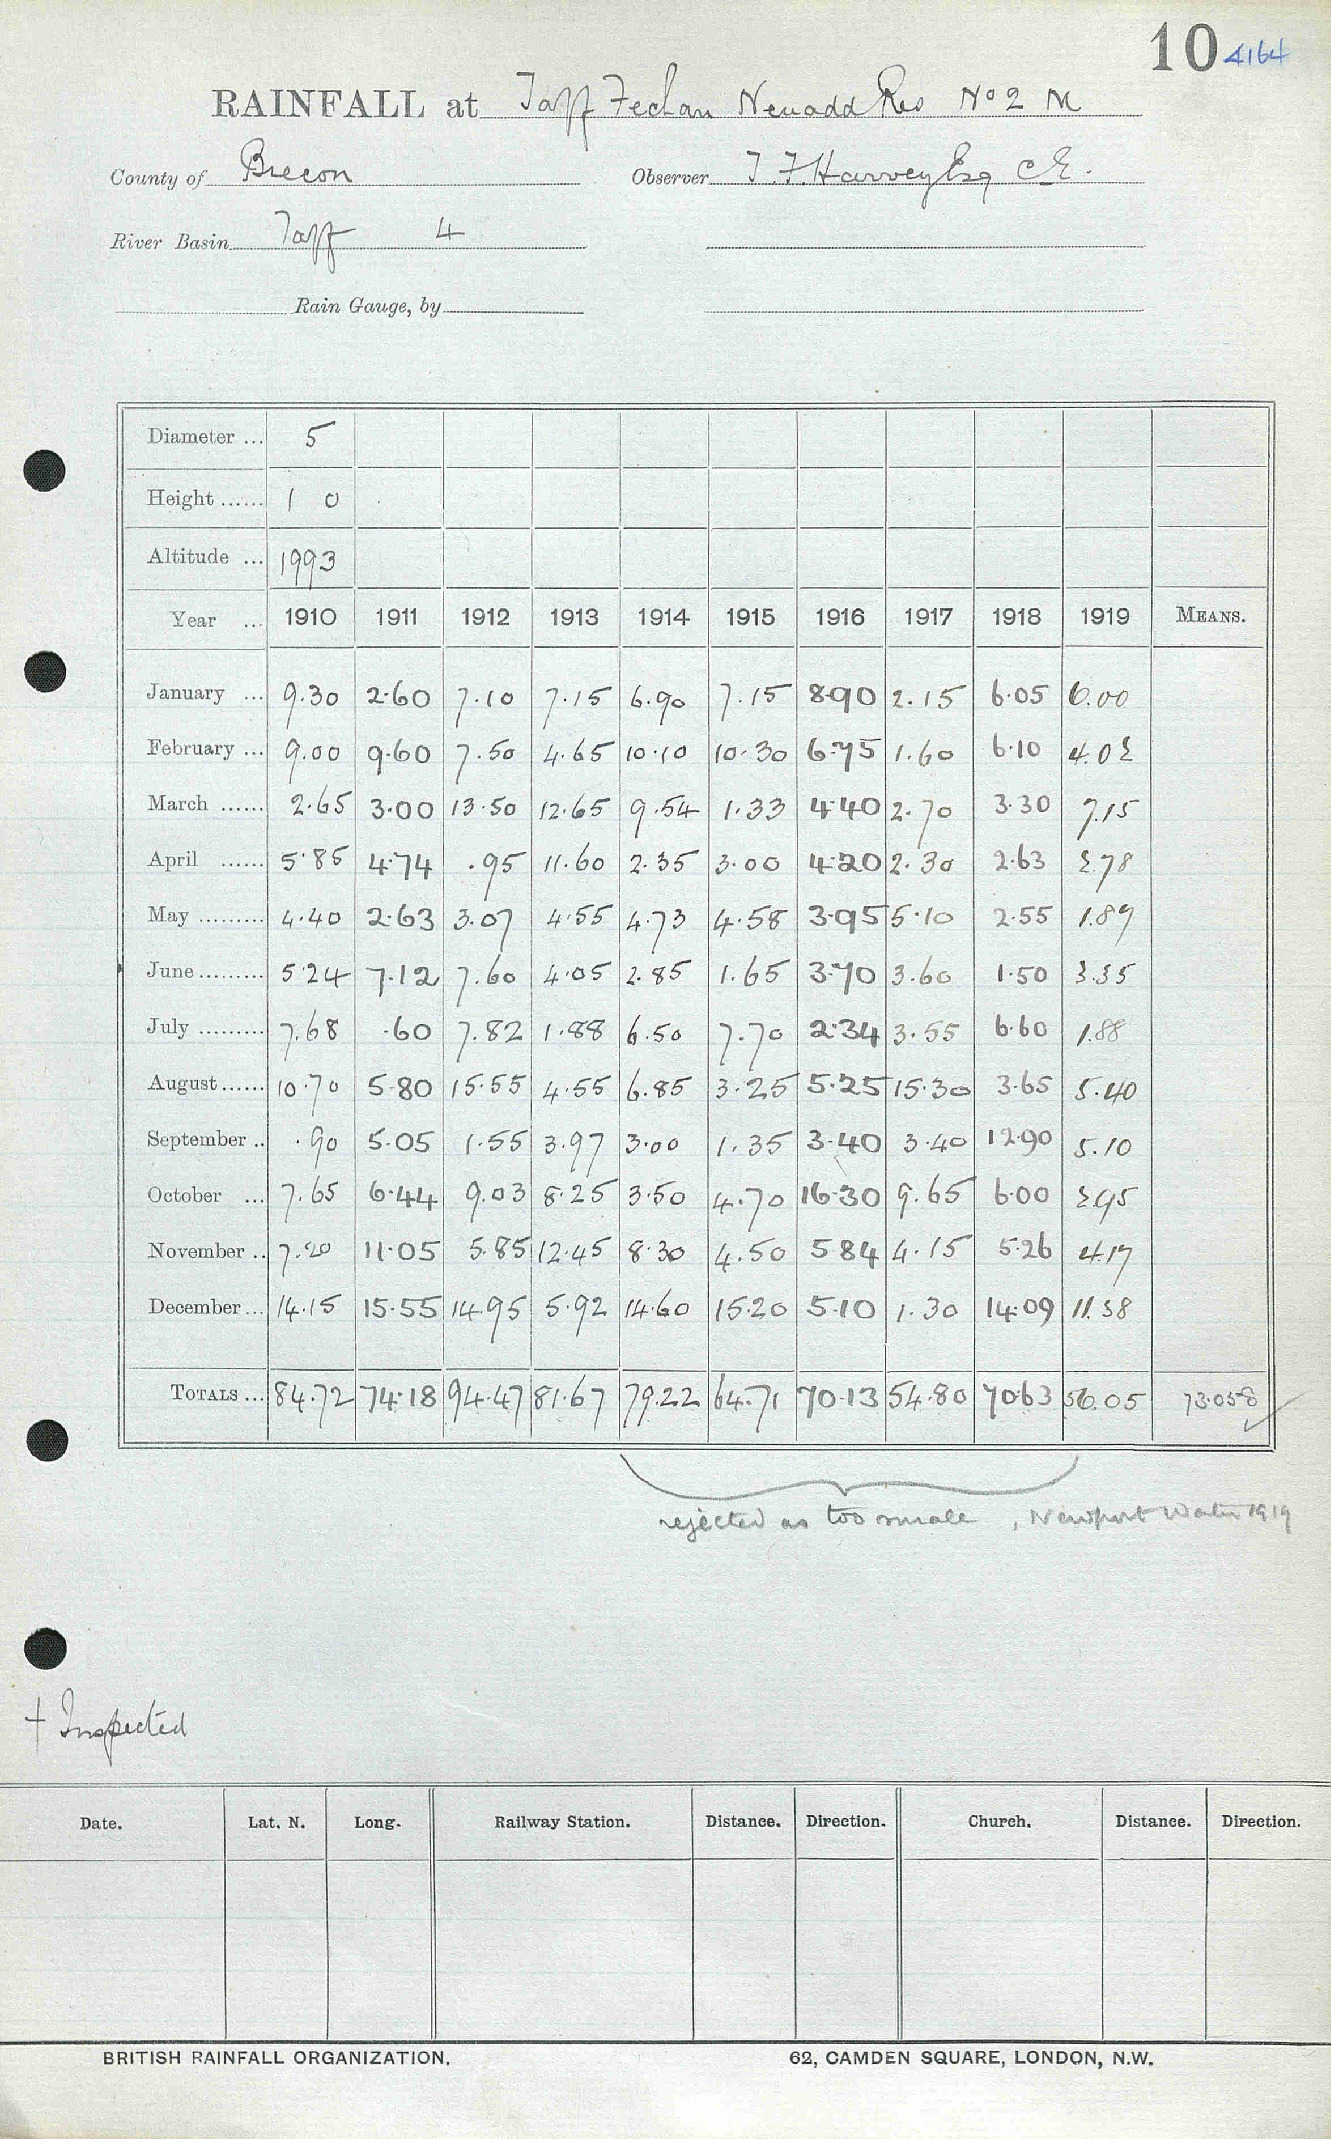 10 4164
RAINFALL at Taff Fechan Neuadd Res No 2 M
County of Brecon Observer T. F. Harvey Esq C.E.
River Basin Taff 4
Rain Gauge, by
Diameter ... 5
Height ...... 1 0
Altitude ... 1993
Year ... 1910 1911 1912 1913 1914 1915 1916 1917 1918 1919 MEANS.
January ... 9.30 2.60 7.10 7.15 6.90 7.15 8.90 2.15 6.05 6.00
February ... 9.00 9.60 7.50 4.65 10.10 10.30 6.75 1.60 6.10 4.02
March ...... 2.65 3.00 13.50 12.65 9.54 1.33 4.40 2.70 3.30 7.15
April ...... 5.85 4.74 .95 11.60 2.35 3.00 4.20 2.30 2.63 2.78
May ......... 4.40 2.63 3.07 4.55 4.73 4.58 3.95 5.10 2.55 1.89
June ......... 5.24 7.12 7.60 4.05 2.85 1.65 3.70 3.60 1.50 3.35
July ......... 7.68 .60 7.82 1.88 6.50 7.70 2.34 3.55 6.60 1.88
August ...... 10.70 5.80 15.55 4.55 6.85 3.25 5.25 15.30 3.65 5.40
September .. .90 5.05 1.55 3.97 3.00 1.35 3.40 3.40 12.90 5.10
October ... 7.65 6.44 9.03 8.25 3.50 4.70 16.30 9.65 6.00 2.95
November .. 7.20 11.05 5.85 12.45 8.30 4.50 5.84 4.15 5.26 4.17
December ... 14.15 15.55 14.95 5.92 14.60 15.20 5.10 1.30 14.09 11.38
TOTALS ... 84.72 74.18 94.47 81.67 79.22 64.71 70.13 54.80 70.63 56.05 73.058
rejected as too small, Newport Water 1919
† Inspected
Date. Lat. N. Long. Railway Station. Distance. Direction. Church. Distance. Direction.
BRITISH RAINFALL ORGANIZATION. 62, CAMDEN SQUARE, LONDON, N.W.